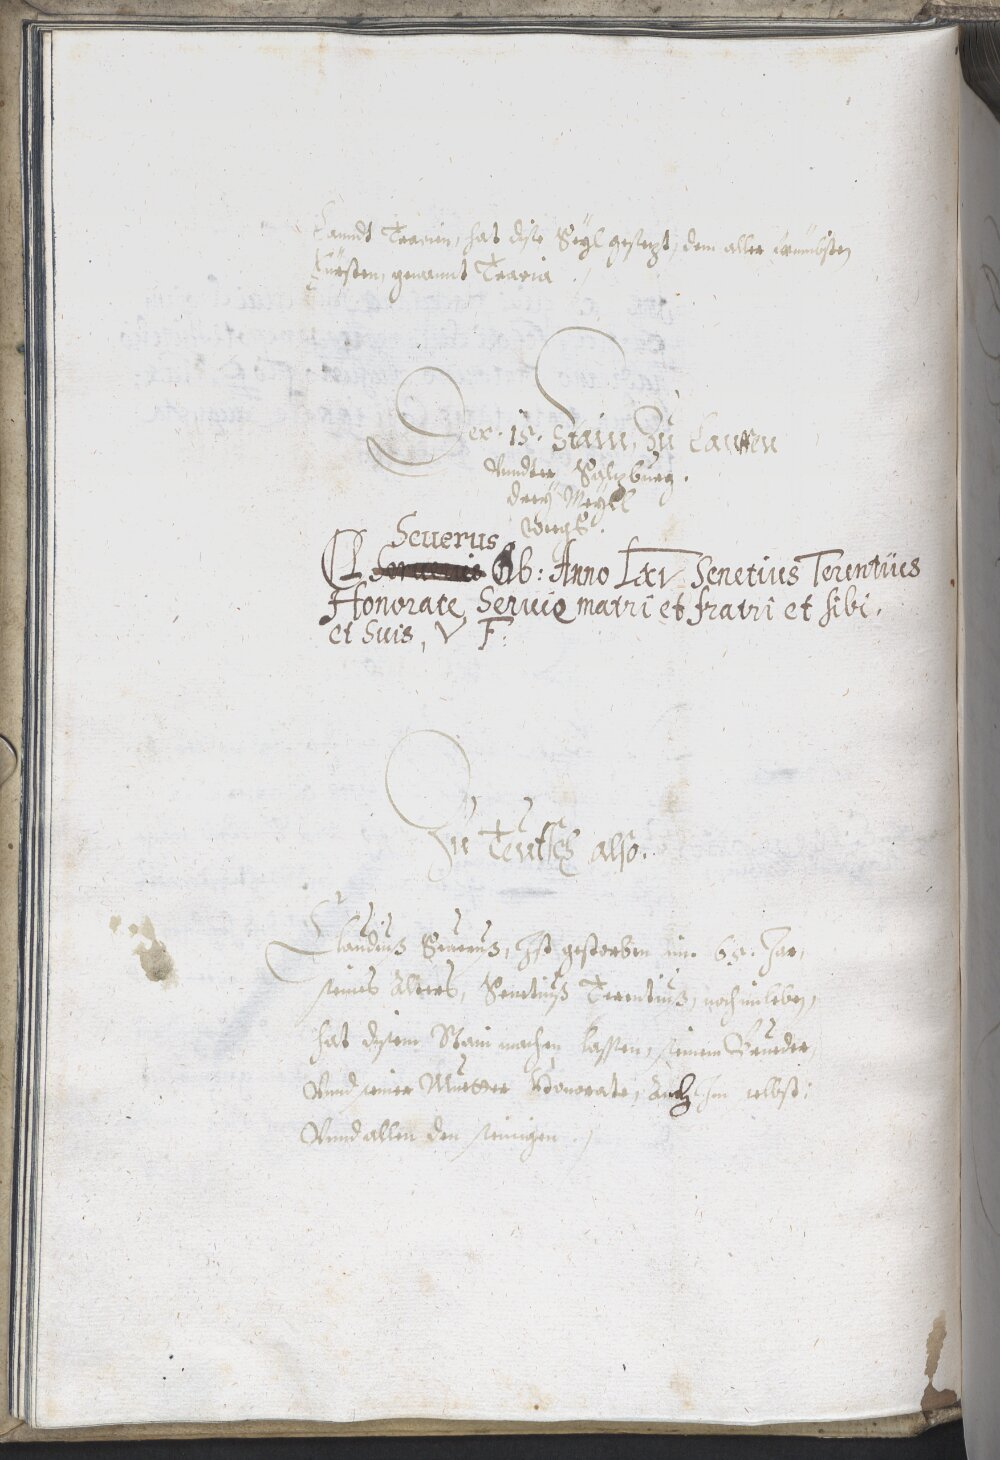 Lanndt Traien, hat dise Seyl gesezt, dem aller
Fürsten, genannt Traria ./
Der . 15 . Stain, Zu Lauffen
Vnndter Saltzburg .
drey Meyll
wegß .
Seuerus
CL Ob: Anno LXV Senetius Terentius
Honorate Seruio matri et fratri et sibi.
et suis, V F:
Zu Teutsch also.
Claudius Seuerus, Ist gestorben im . 65 . Jar,
seines Alters, Senetius Terentius, noch im leben,
hat disem Stain machen lassen, seinem Brueder,
Vnnd seiner Muetter Honorate, Auch Im selbst:
Vnnd allen den seinigen ./